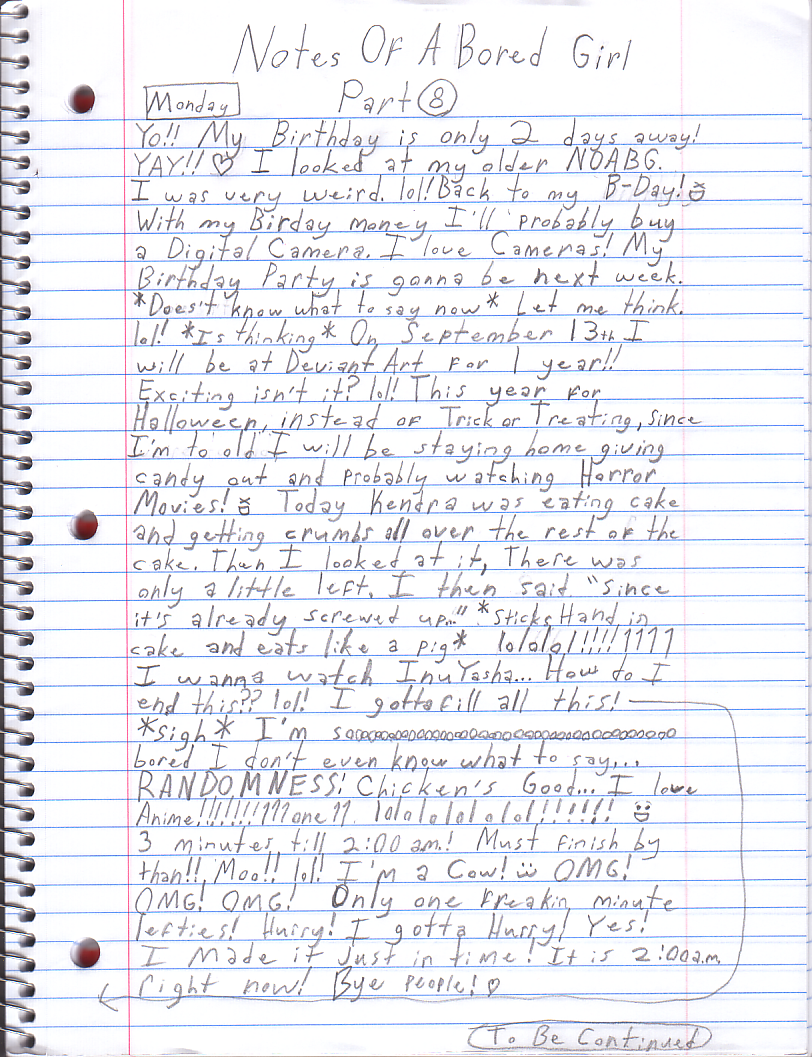 Notes Of A Bored Girl
Monday
Part 8
Yo!! My Birthday is only 2 days away!
YAY!! ♡ I looked at my older NOABG.
I was very weird. lol! Back to my B-Day!
With my Birday money I'll probably buy
a Digital Camera. I love Cameras! My
Birthday Party is gonna be next week.
*Does't know what to say now* Let me think.
lol! *Is thinking* On September 13th I
will be at Deviant Art for 1 year!!
Exciting isn't it? lol! This year for
Halloween, instead of Trick or Treating, since
I'm to old I will be staying home giving
candy out and probably watching Horror
Movies! Today Kendra was eating cake
and getting crumbs all over the rest of the
cake. Then I looked at it, There was
only a little left. I then said "Since
it's already screwed up..." *Sticks Hand in
cake and eats like a pig* lololol!!!!1111
I wanna watch InuYasha... How do I
end this?? lol! I gotta fill all this!
*Sigh* I'm soooooooooooooooooooooooooooooooo
bored I don't even know what to say...
RANDOMNESS! Chicken's Good... I love
Anime!!!!!!!111one11. lolololololol!!!!!!!
3 minutes till 2:00 am.! Must finish by
than!! Moo!! lol! I'm a Cow! OMG!
OMG! OMG! Only one freakin minute
lefties! Hurry! I gotta Hurry! Yes!
I Made it Just in time! It is 2:00a.m.
right now! Bye People! ♡
To Be Continued